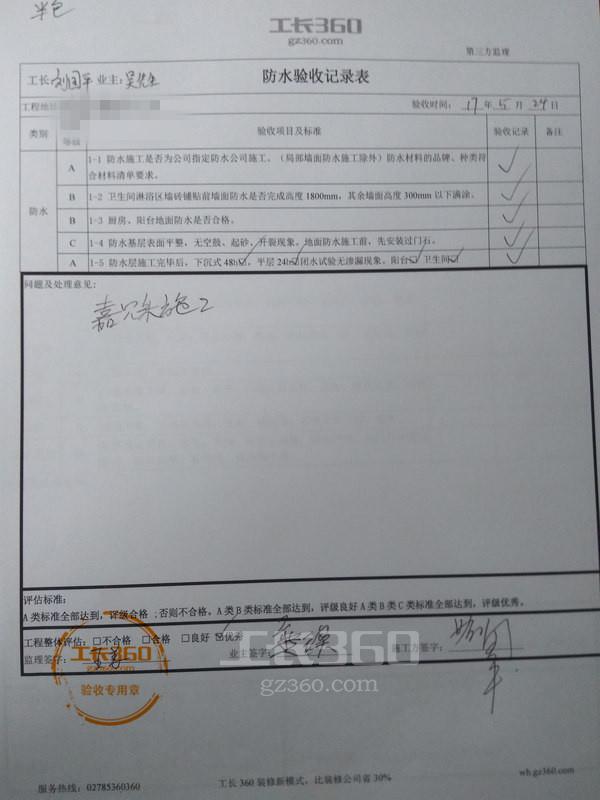 半包
工长360
gz360.com
第三方监理
工长: 刘国平 业主: 吴先生
防水验收记录表
工程地址
验收时间: 17 年 5 月 24 日
类别
等级
验收项目及标准
验收记录
备注
防水
A
1-1 防水施工是否为公司指定防水公司施工。（局部墙面防水施工除外）防水材料的品牌、种类符合材料清单要求。
B
1-2 卫生间淋浴区墙砖铺贴前墙面防水是否完成高度 1800mm，其余墙面高度 300mm 以下满涂。
B
1-3 厨房、阳台地面防水是否合格。
C
1-4 防水基层表面平整，无空鼓、起砂、开裂现象。地面防水施工前，先安装过门石。
A
1-5 防水层施工完毕后，下沉式 48h☑，平层 24h☑闭水试验无渗漏现象。阳台☑ 卫生间☑
问题及处理意见:
施工
评估标准:
A 类标准全部达到，评级合格；否则不合格。A 类 B 类标准全部达到，评级良好 A 类 B 类 C 类标准全部达到，评级优秀。
工程整体评估: □不合格 □合格 □良好 ☑优秀
监理签字:
业主签字:
施工方签字:
工长360
验收专用章
工长360
gz360.com
服务热线: 02785360360
工长 360 装修新模式，比装修公司省 30%
wh.gz360.com